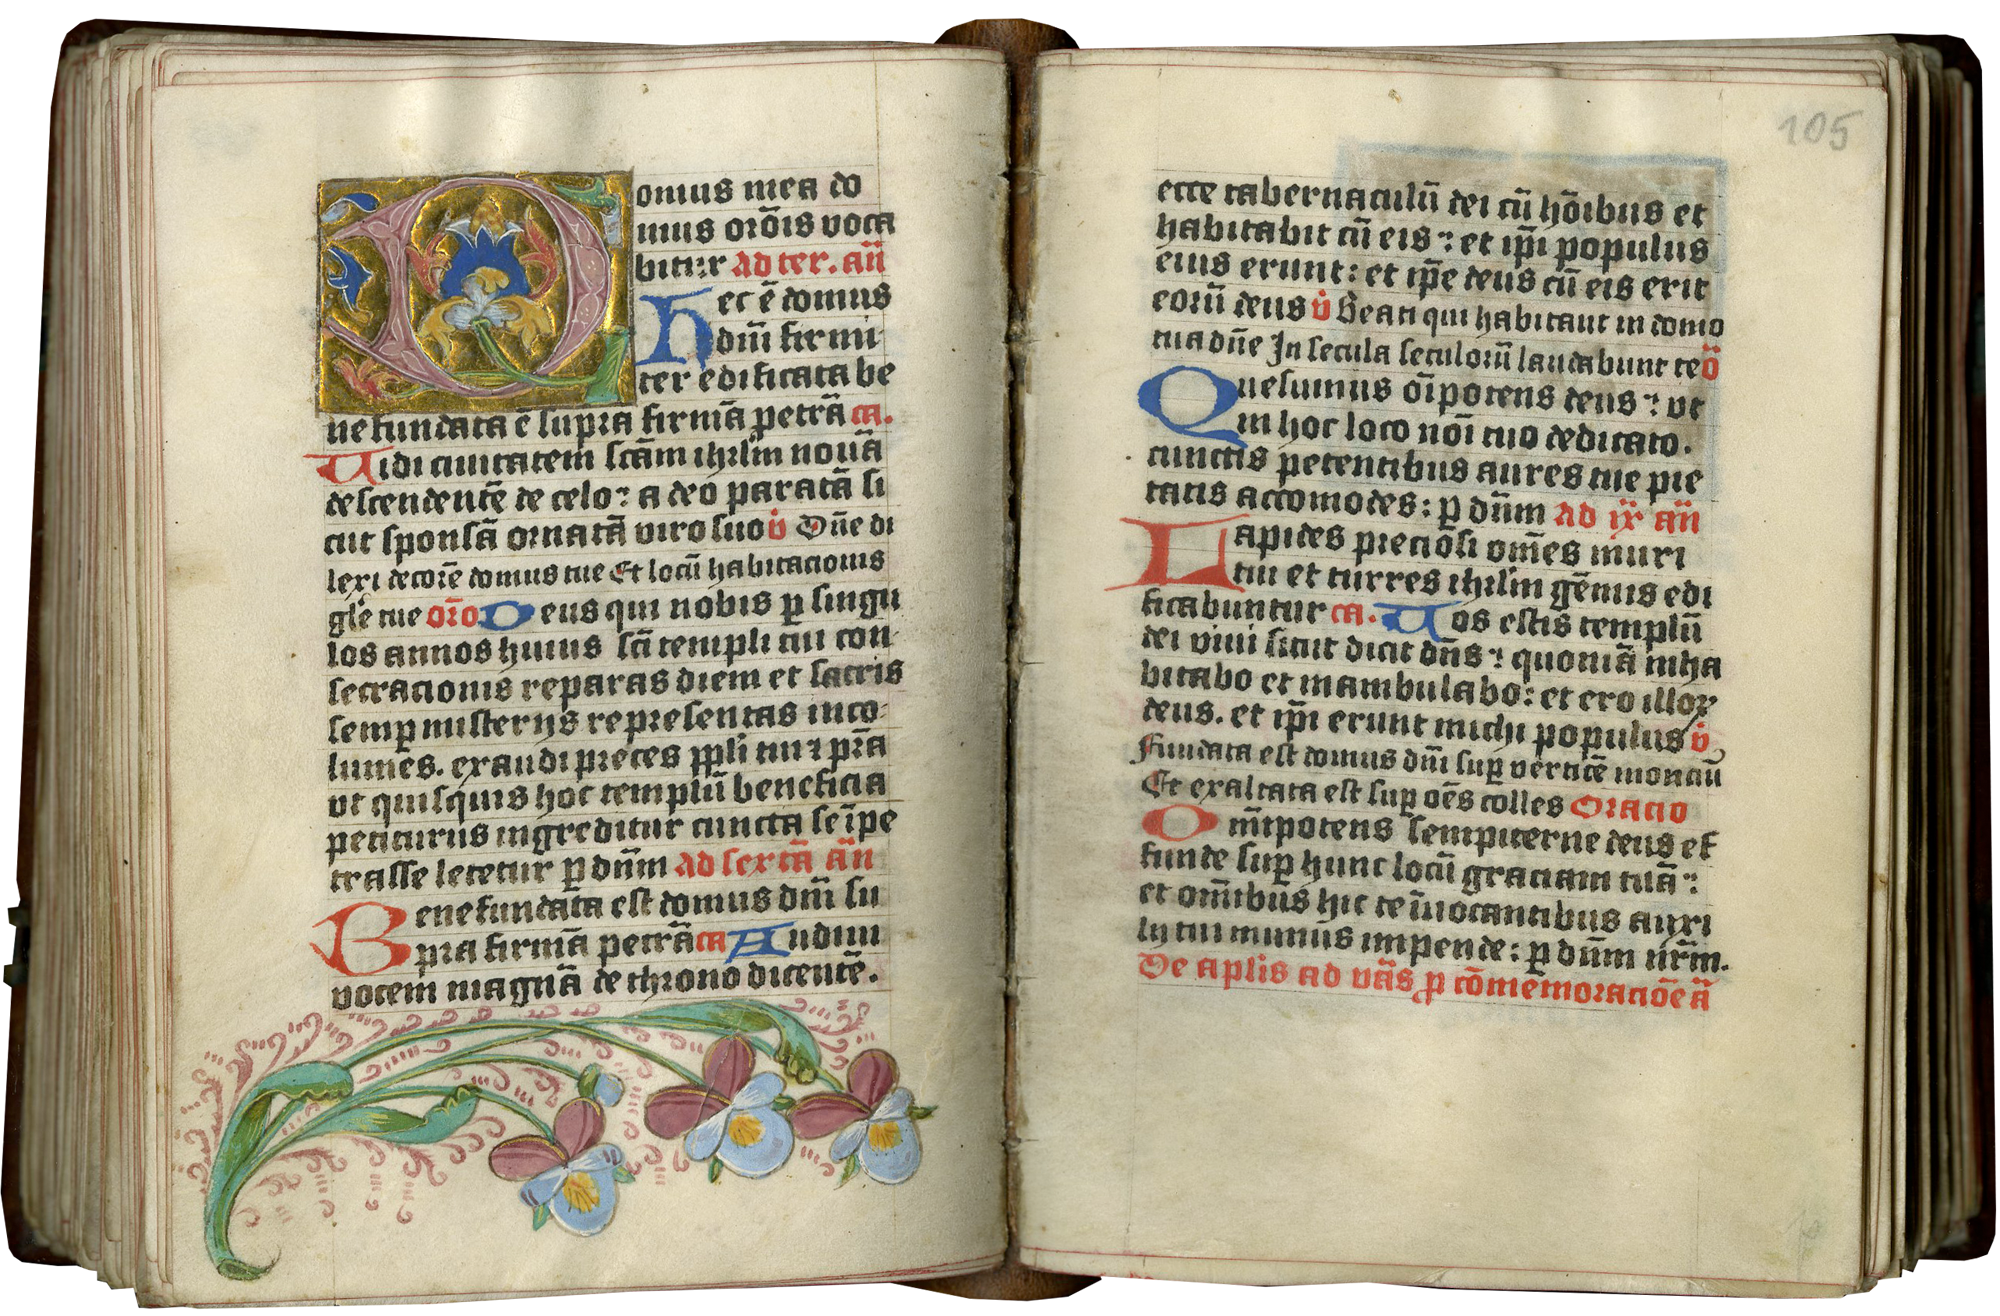 Domus mea do
mus or̄ois voca
bitur ad ter. an̄
hec ē domus
dn̄i firmi-
ter edificata be
ne fundata ē supra firmā petrā ca.
Vidi ciuitatem sc̄am ihrlm̄ nouā
descendentē de celo: a deo paratā si
cut sponsā ornatā viro suo v̇ Dn̄e di
lexi decorē domus tue Et locū habitacionis
gl̄e tue or̄o Deus qui nobis ꝑ singu
los annos huius sc̄i templi tui con-
secracionis reparas diem et sacris
semꝑ misterijs representas inco-
lumes. exaudi preces ppl̄i tui ⁊ pr̄a
vt quisquis hoc templū beneficia
petiturus ingreditur cuncta se īpe
trasse letetur ꝑ dn̄m ad sextā an̄
Bene fundata est domus dn̄i su
pra firmā petrā ca Audiui
vocem magnā de throno dicentē.
105
ecce tabernaculū dei cū hōibus et
habitabit cū eis: et ip̄i populus
eius erunt: et ip̄e deus cū eis erit
eorū deus v̇ Beati qui habitant in domo
tua dn̄e In secula seculorū laudabunt te ō
Quesumus oīpotens deus: vt
in hoc loco nōi tuo dedicato.
cunctis petentibus aures tue pie
tatis accomodes: ꝑ dn̄m ad ix an̄
Lapides preciosi om̄es muri
tui et turres ihrlm̄ gēmis edi
ficabuntur ca. Vos estis templū
dei viui sicut dicit dn̄s: quoniā inha
bitabo et inambulabo: et ero illoꝝ
deus. et ip̄i erunt michi populus v̇
Fundata est domus dn̄i suꝑ verticē montiū
Et exaltata est suꝑ oēs colles Oracio
Om̄ipotens sempiterne deus ef
funde suꝑ hunc locū graciam tuā:
et om̄ibus hic te īuocantibus auxi
lij tui munus impende: ꝑ dn̄m nr̄m.
De apl̄is ad vās ꝓ cōmemoraciōe ā